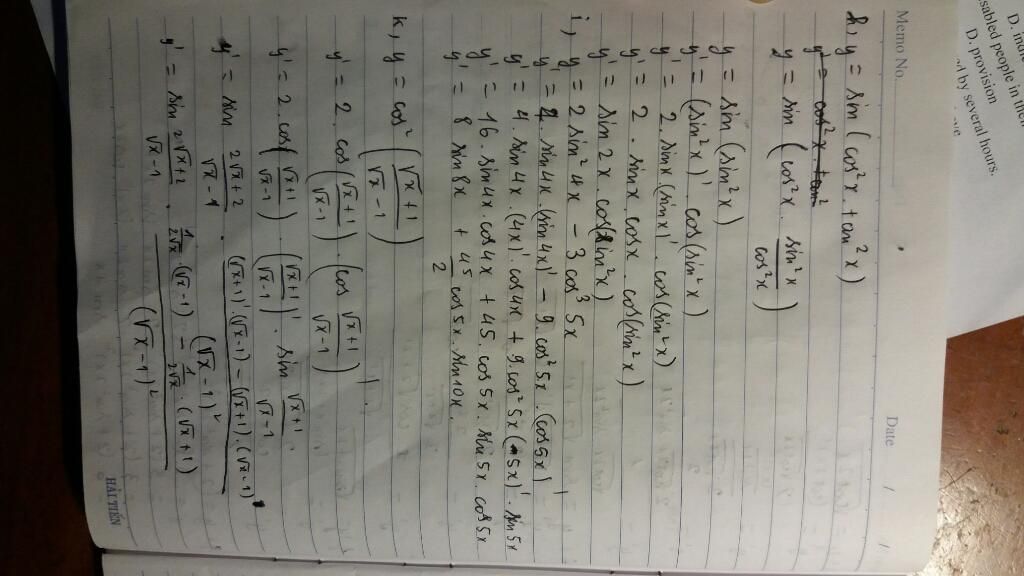 D. provision
by several hours.
Memo No.
Date / /
h, y = sin (cos²x . tan²x)
y = cos²x . tan²
y = sin (cos²x . sin²x / cos²x)
y = sin (sin²x)
y' = (sin²x)' . cos(sin²x)
y' = 2 . sinx (sinx)' . cos(sin²x)
y' = 2 . sinx cosx . cos(sin²x)
y' = sin2x . cos(sin²x)
i, y = 2 sin²4x - 3 cos³5x
y' = 4 . sin4x . (sin4x)' - 9 . cos²5x . (cos5x)'
y' = 4 . sin4x . (4x)' . cos4x + 9 . cos²5x (5x)' . sin5x
y' = 16 . sin4x . cos4x + 45 . cos5x . sin5x . cos5x
y' = 8 sin8x + 45/2 cos5x . sin10x
k, y = cos² ((√x + 1)/(√x - 1))
y' = 2 . cos((√x + 1)/(√x - 1)) . (cos (√x + 1)/(√x - 1))'
y' = 2 . cos((√x + 1)/(√x - 1)) . ((√x + 1)/(√x - 1))' . sin (√x + 1)/(√x - 1)
y' = sin (2√x + 2)/(√x - 1) . ((√x + 1)' . (√x - 1) - (√x + 1) . (√x - 1)')/(√x - 1)²
y' = sin (2√x + 2)/(√x - 1) . (1/(2√x) . (√x - 1) - 1/(2√x) . (√x + 1))/(√x - 1)²
HẢI TIẾN